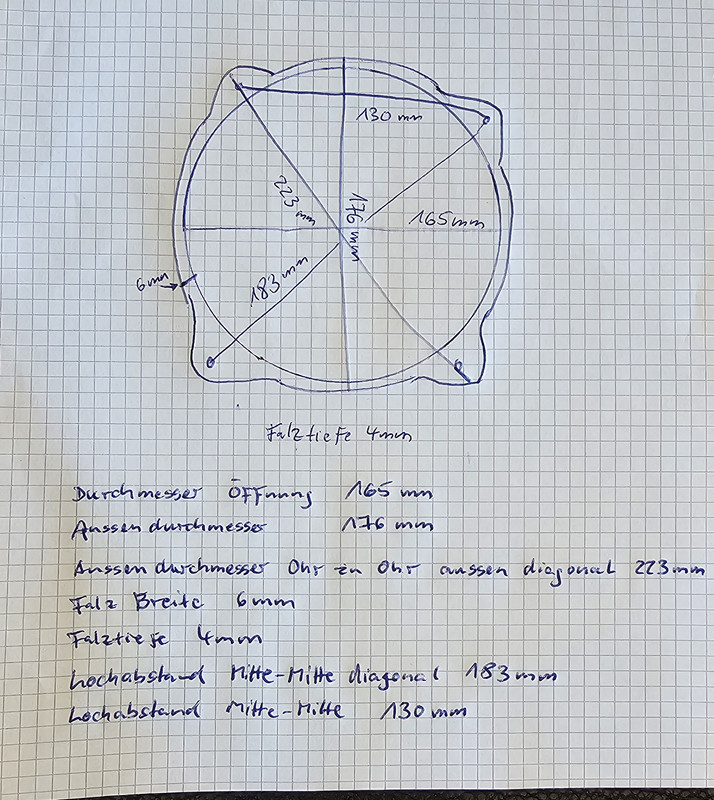 130 mm
223 mm
176 mm
165 mm
6mm
183 mm
Falztiefe 4mm
Durchmesser Öffnung 165 mm
Aussendurchmesser 176 mm
Aussendurchmesser Ohr zu Ohr aussen diagonal 223mm
Falz Breite 6mm
Falztiefe 4mm
Lochabstand Mitte-Mitte diagonal 183 mm
Lochabstand Mitte-Mitte 130 mm